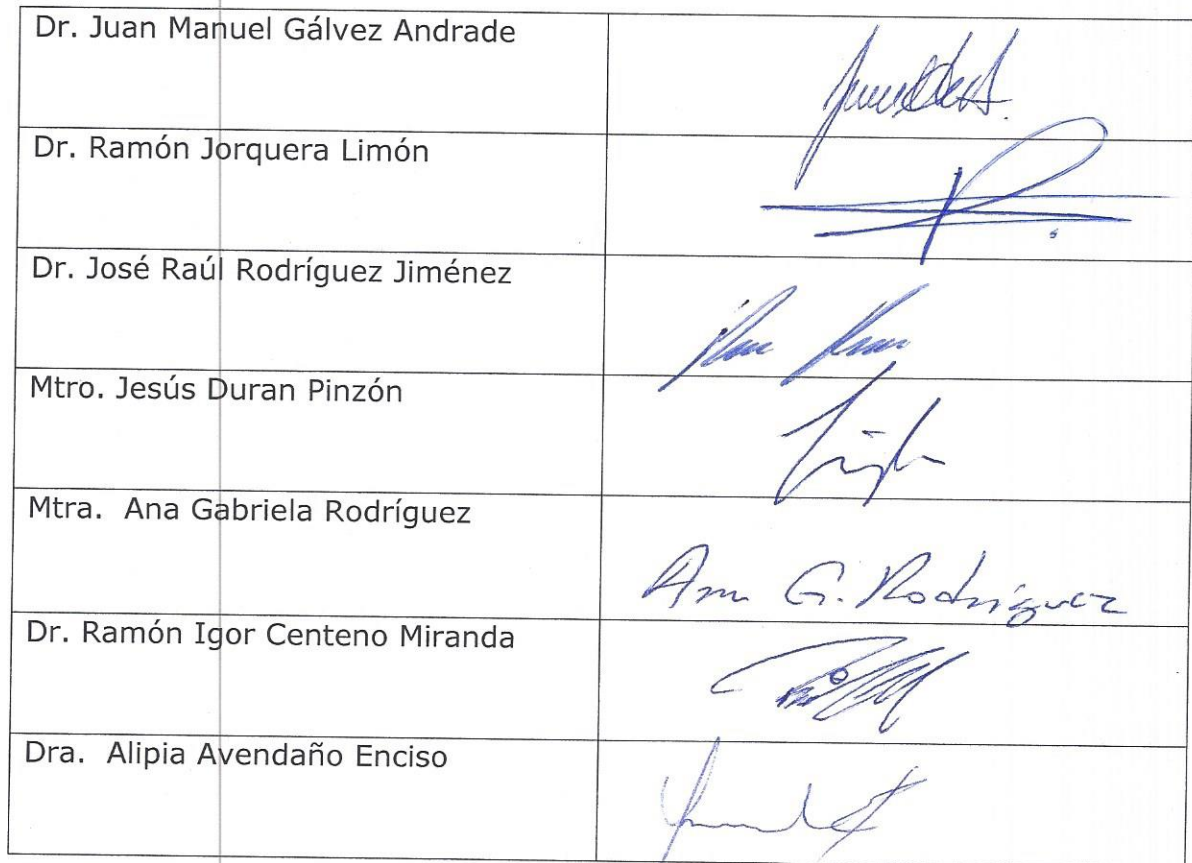 Dr. Juan Manuel Gálvez Andrade
Dr. Ramón Jorquera Limón
Dr. José Raúl Rodríguez Jiménez
Mtro. Jesús Duran Pinzón
Mtra.  Ana Gabriela Rodríguez
Ana G. Rodríguez
Dr. Ramón Igor Centeno Miranda
Dra.  Alipia Avendaño Enciso